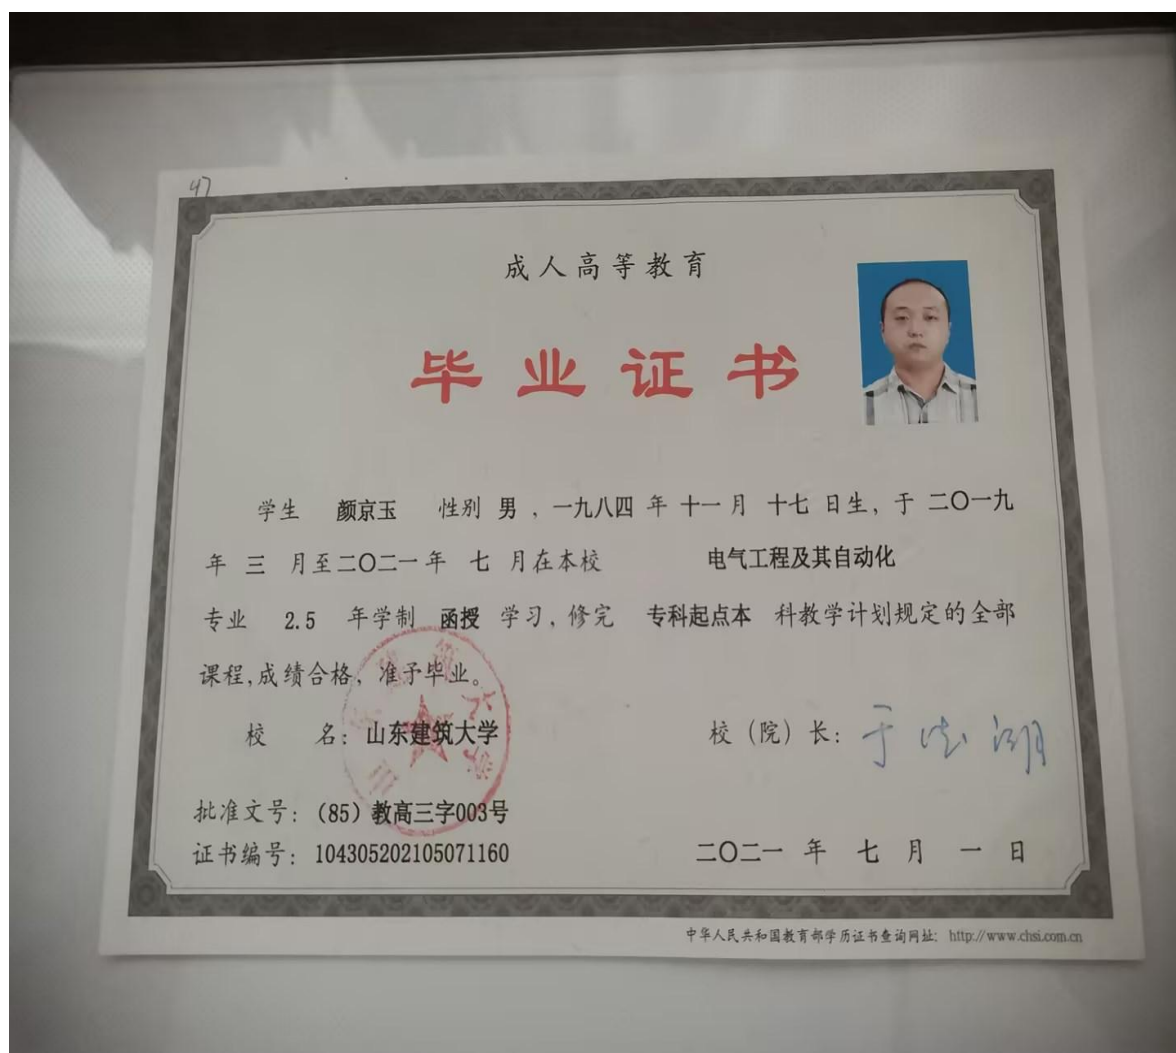 47
成人高等教育
毕业证书
学生 颜京玉 性别 男，一九八四 年 十一 月 十七 日生，于 二〇一九
年 三 月至二〇二一年 七 月在本校 电气工程及其自动化
专业 2.5 年学制 函授 学习，修完 专科起点本 科教学计划规定的全部
课程,成绩合格，准予毕业。
校 名：山东建筑大学 校（院）长：于德湖
山东建筑大学
批准文号：（85）教高三字003号
证书编号：104305202105071160 二〇二一 年 七 月 一 日
中华人民共和国教育部学历证书查询网址：http://www.chsi.com.cn